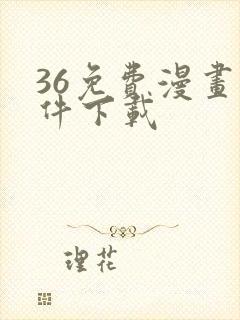 36免費漫畫
件下載
理花